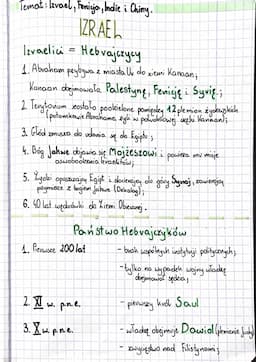 Temat: Izrael, Fenicja, Indie i Chiny.
IZRAEL
Izraelici = Hebrajczycy
1. Abraham przybywa z miasta Ur do ziemi Kanaan;
Kanaan obejmowała Palestynę, Fenicję i Syrię;
2. Terytorium zostało podzielone pomiędzy 12 plemion żydowskich
(potomkowie Abrahama żyli w południowej części Kanaan);
3. Głód zmusza do udania się do Egiptu;
4. Bóg Jahwe objawia się Mojżeszowi i powierza mu misję
oswobodzenia Izraelitów;
5. Żydzi opuszczają Egipt i docierają do góry Synaj, zawierają
przymierze z bogiem Jahwe (Dekalog);
6. 40 lat wędrówki do Ziemi Obiecanej.
Państwo Hebrajczyków
1. Pierwsze 200 lat - brak wspólnych instytucji politycznych;
- tylko na wypadek wojny władzę
obejmowali sędziowie;
2. XI w. p.n.e. - pierwszy król Saul
3. X w. p.n.e. - władzę obejmuje Dawid (plemienia Judy)
- zwycięstwo nad Filistynami;